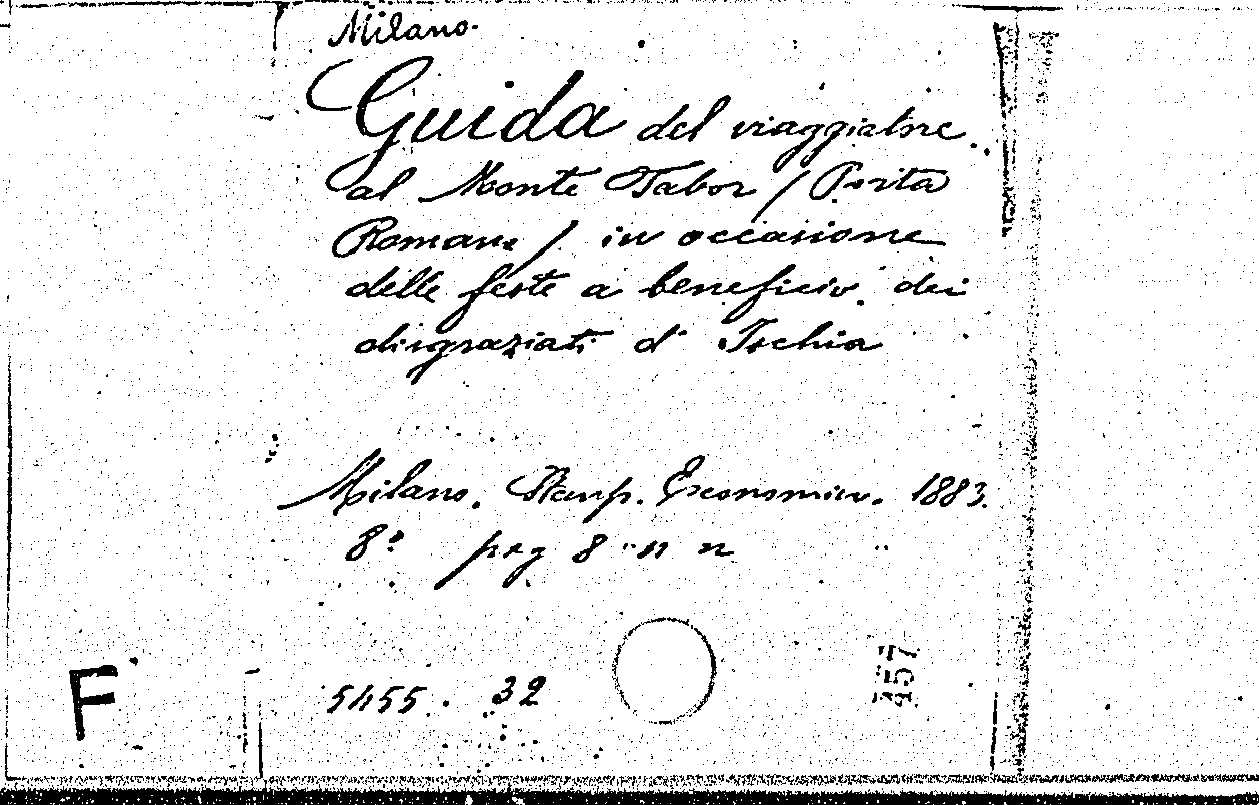 Milano.
Guida del viaggiatore
al Monte Tabor / Porta
Romana / in occasione
delle feste a beneficio dei
disgraziati d' Ischia
Milano. Stamp. Economica. 1883.
8° pag 8 n n
F
5455. 32
357